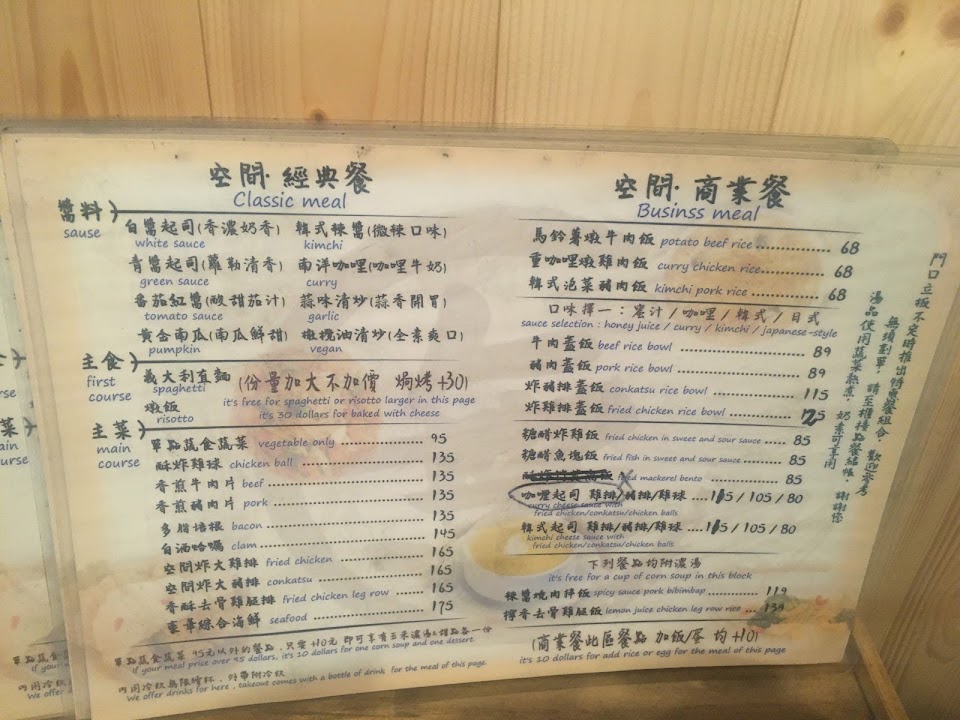 空間·經典餐
Classic meal
醬料
sause
白醬起司(香濃奶香) 韓式辣醬(微辣口味)
white sauce kimchi
青醬起司(蘿勒清香) 南洋咖哩(咖哩牛奶)
green sauce curry
番茄紅醬(酸甜茄汁) 蒜味清炒(蒜香開胃)
tomato sauce garlic
黃金南瓜(南瓜鮮甜) 橄欖油清炒(全素爽口)
pumpkin vegan
主食
first
course
義大利直麵 (份量加大不加價 焗烤+30)
spaghetti it's free for spaghetti or risotto larger in this page
燉飯 it's 30 dollars for baked with cheese
risotto
主菜
main
course
單點蔬食蔬菜 vegetable only 95
酥炸雞球 chicken ball 135
香煎牛肉片 beef 135
香煎豬肉片 pork 135
多脂培根 bacon 135
白酒蛤蠣 clam 145
空間炸大雞排 fried chicken 165
空間炸大豬排 conkatsu 165
香酥去骨雞腿排 fried chicken leg row 165
豪華綜合海鮮 seafood 175
單點蔬食蔬菜 95元以外的餐點，只需+10元 即可享有玉米濃湯&甜點各一份
If your meal price over 95 dollars, it's 10 dollars for one corn soup and one dessert
內用冷飲無限續杯，外帶附冷飲
We offer drinks for here, takeout comes with a bottle of drink for the meal of this page
空間·商業餐
Businss meal
馬鈴薯燉牛肉飯 potato beef rice 68
重咖哩燉雞肉飯 curry chicken rice 68
韓式泡菜豬肉飯 kimchi pork rice 68
口味擇一：蜜汁/咖哩/韓式/日式
sauce selection : honey juice / curry / kimchi / japanese-style
牛肉蓋飯 beef rice bowl 89
豬肉蓋飯 pork rice bowl 89
炸豬排蓋飯 conkatsu rice bowl 115
炸雞排蓋飯 fried chicken rice bowl 125
糖醋炸雞飯 fried chicken in sweet and sour sauce 85
糖醋魚塊飯 fried fish in sweet and sour sauce 85
fried mackerel bento 85
咖哩起司 雞排/豬排/雞球 115 / 105 / 80
curry cheese sauce with
fried chicken/conkatsu/chicken balls
韓式起司 雞排/豬排/雞球 115 / 105 / 80
kimchi cheese sauce with
fried chicken/conkatsu/chicken balls
下列餐點均附濃湯
it's free for a cup of corn soup in this block
辣醬燒肉拌飯 spicy sauce pork bibimbap 119
檸香去骨雞腿飯 lemon juice chicken leg row rice 139
(商業餐此區餐點 加飯/蛋 均+10)
it's 10 dollars for add rice or egg for the meal of this page
門口立板不定時推出特惠餐組合，歡迎參考
無須劃單，請至櫃檯點餐結帳，謝謝您
湯品使用蔬菜熬煮，奶素可享用
菜
main
course